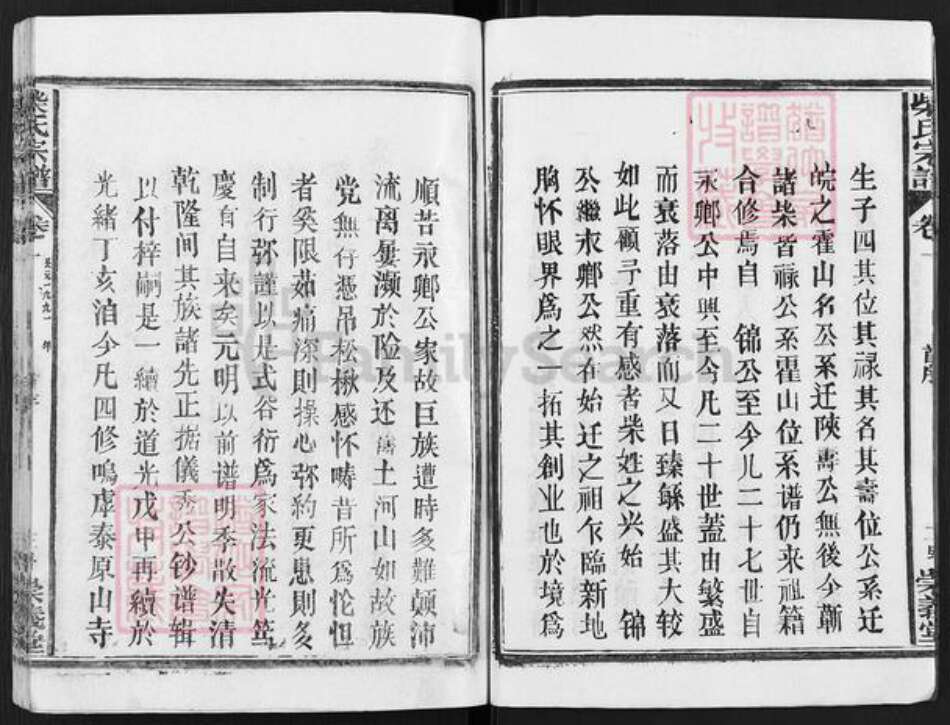 柴氏宗譜
卷一
首序
崇義堂
生子四其位其禄其名其壽位公系迁
皖之霍山名公系迁陝壽公無後今蘄
諸柴皆禄公系霍山位系谱仍来祖籍
合修焉自 锦公至今凡二十七世自
永鄉公中興至今凡二十世蓋由繁盛
而衰落由衰落而又日臻繇盛其大较
如此顧予重有感者柴姓之兴始 锦
公繼永鄉公然在始迁之祖乍臨新地
胸怀眼界爲之一拓其創业也於境爲
順昔永鄉公家故巨族遭時多難颠沛
流离屡濒於险及还 土河山如故族
党無存憑吊松楸感怀畴昔所爲怆怛
者奚限茹痛深則操心弥約更患則多
制行弥謹以是式谷衍爲家法流光笃
慶有自来矣元明以前谱明季散失清
乾隆间其族諸先正据儀秀公钞谱辑
以付梓嗣是一續於道光戊申再續於
光緒丁亥洎今凡四修鳴虖泰原山寺
柴氏宗譜
卷一
公元一九九一 年
崇義堂
FamilySearch